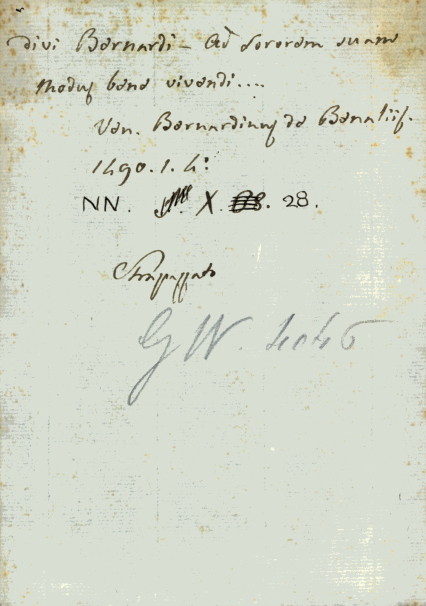 Divi Bernardi – Ad Sororem suam
Modus bene vivendi....
Ven. Bernardinus de Benaliis.
1490. 1. 4°
NN. X. 28.
Strapazzato
GW. 4046